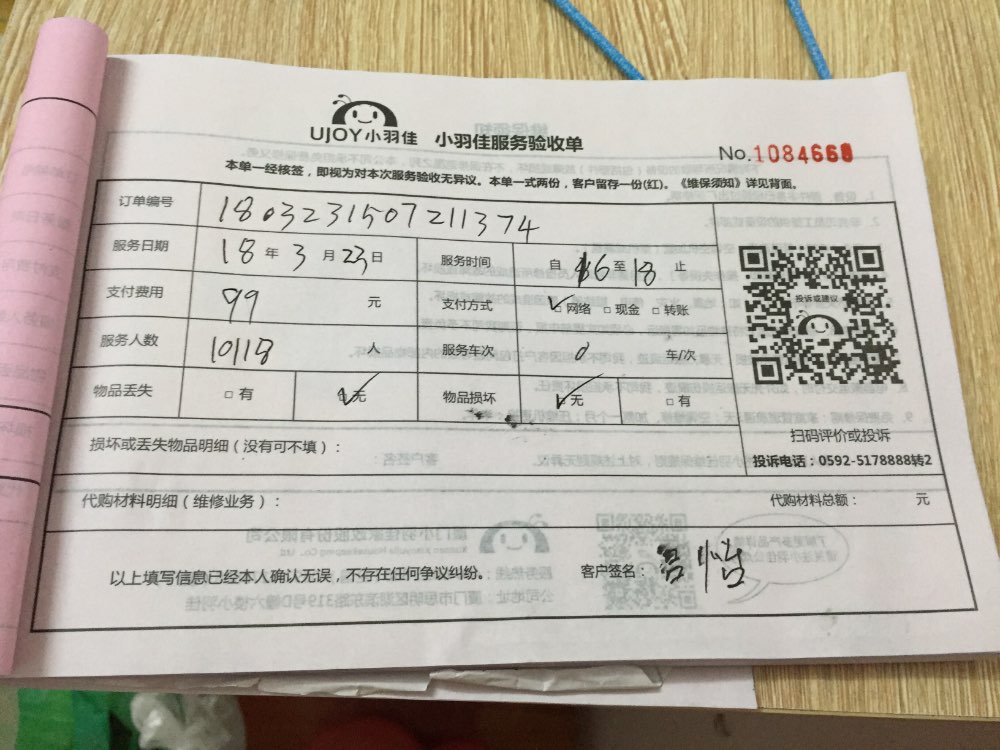 UJOY小羽佳 小羽佳服务验收单
No.1084668
本单一经核签，即视为对本次服务验收无异议。本单一式两份，客户留存一份(红)。《维保须知》详见背面。
订单编号 180323150721137​4
服务日期 18 年 3 月 23 日 服务时间 自 16 至 18 止
支付费用 99 元 支付方式 ✓□ 网络 □ 现金 □ 转账
服务人数 10118 人 服务车次 0 车/次
物品丢失 □ 有 ☑无 物品损坏 ☑无 □ 有
投诉或建议
扫码评价或投诉
投诉电话：0592-5178888转2
损坏或丢失物品明细（没有可不填）：
代购材料明细（维修业务）： 代购材料总额： 元
以上填写信息已经本人确认无误，不存在任何争议纠纷。 客户签名：吕怡